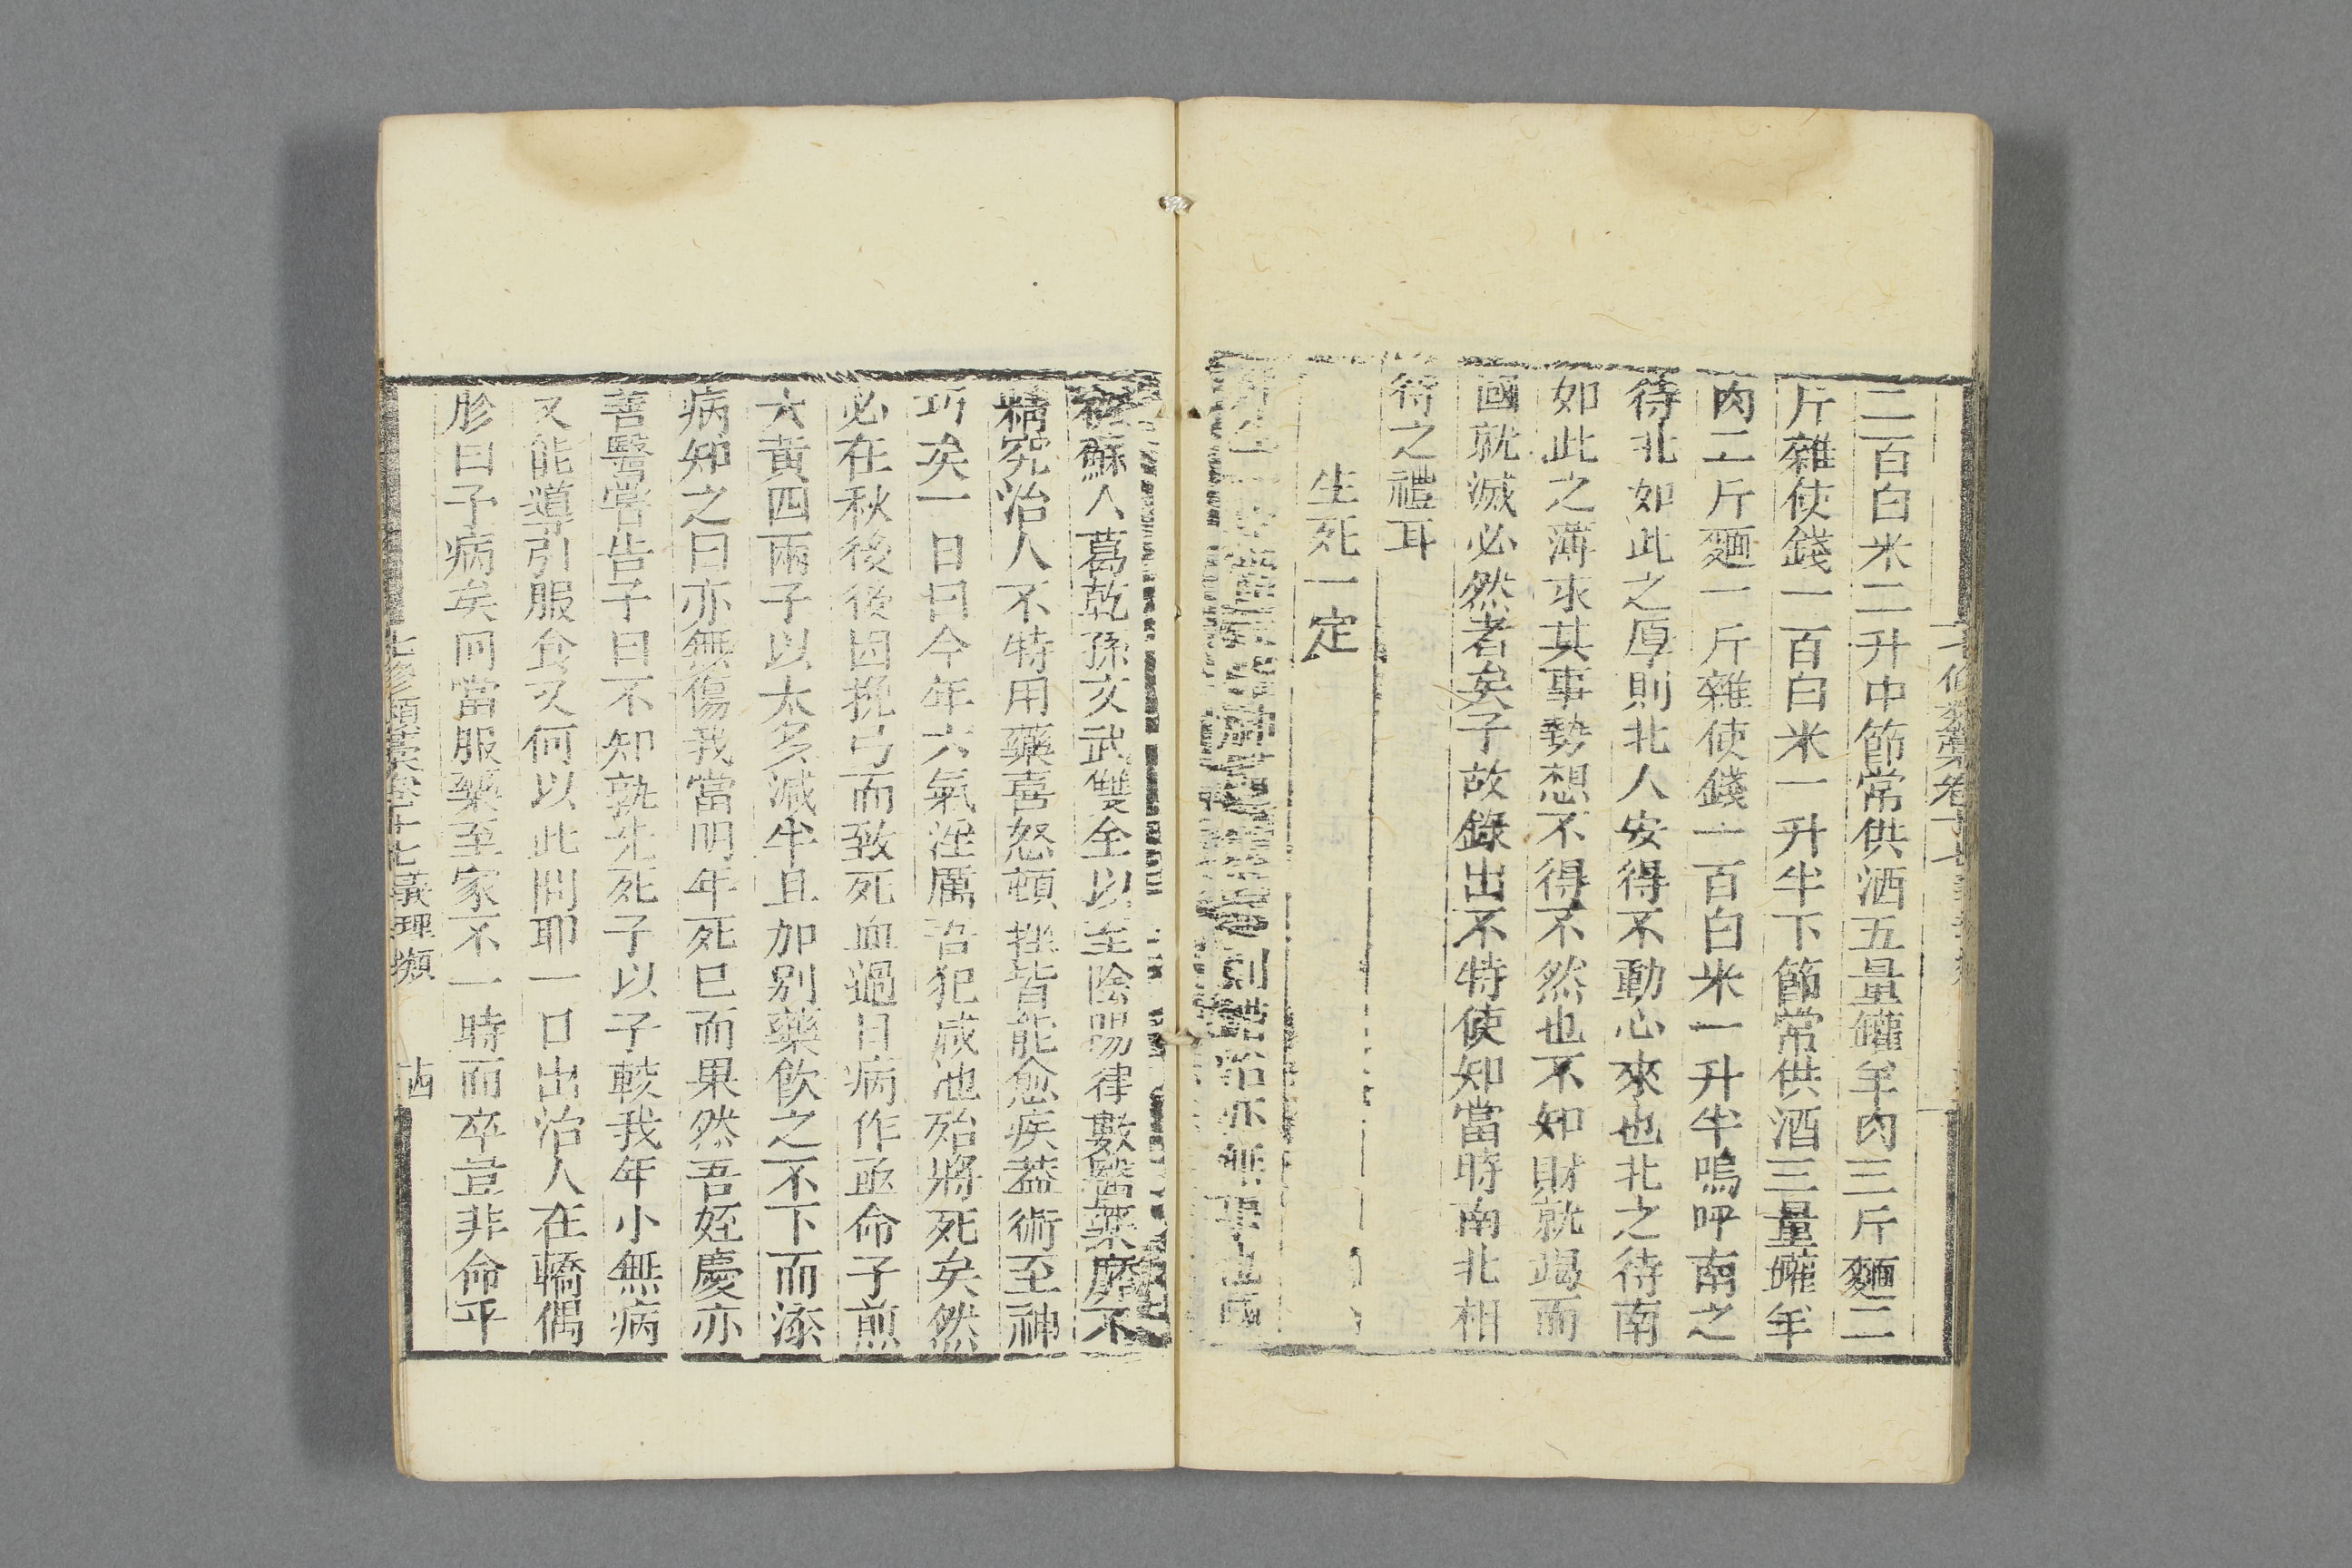 七修類藁卷十七
二百白米二升中節常供酒五量罐羊肉三斤麵二
斤雜使錢一百白米一升半下節常供酒三量罐羊
肉二斤麵一斤雜使錢一百白米一升半嗚呼南之
待北如此之厚則北人安得不動心來也北之待南
如此之薄求其事勢想不得不然也不知財就竭而
國就滅必然者矣予故錄出不特使知當時南北相
待之禮耳
生死一定
亦無事也國
初蘇人葛乾孫文武雙全以至陰陽律數醫藥靡不
精究治人不特用藥喜怒頓挫皆能愈疾葢術至神
巧矣一日曰今年六氣淫厲吾犯咸池殆將死矣然
必在秋後後因挽弓而致死血過日病作亟命子煎
大黃四兩子以太多減半且加別藥飲之不下而添
病知之曰亦無傷我當明年死巳而果然吾姪慶亦
善醫嘗告予曰不知孰先死予以予較我年小無病
又能導引服食又何以此問耶一日出治人在轎偶
胗曰予病矣同當服藥至家不一時而卒豈非命乎
七修類藁卷十七義理類
十四